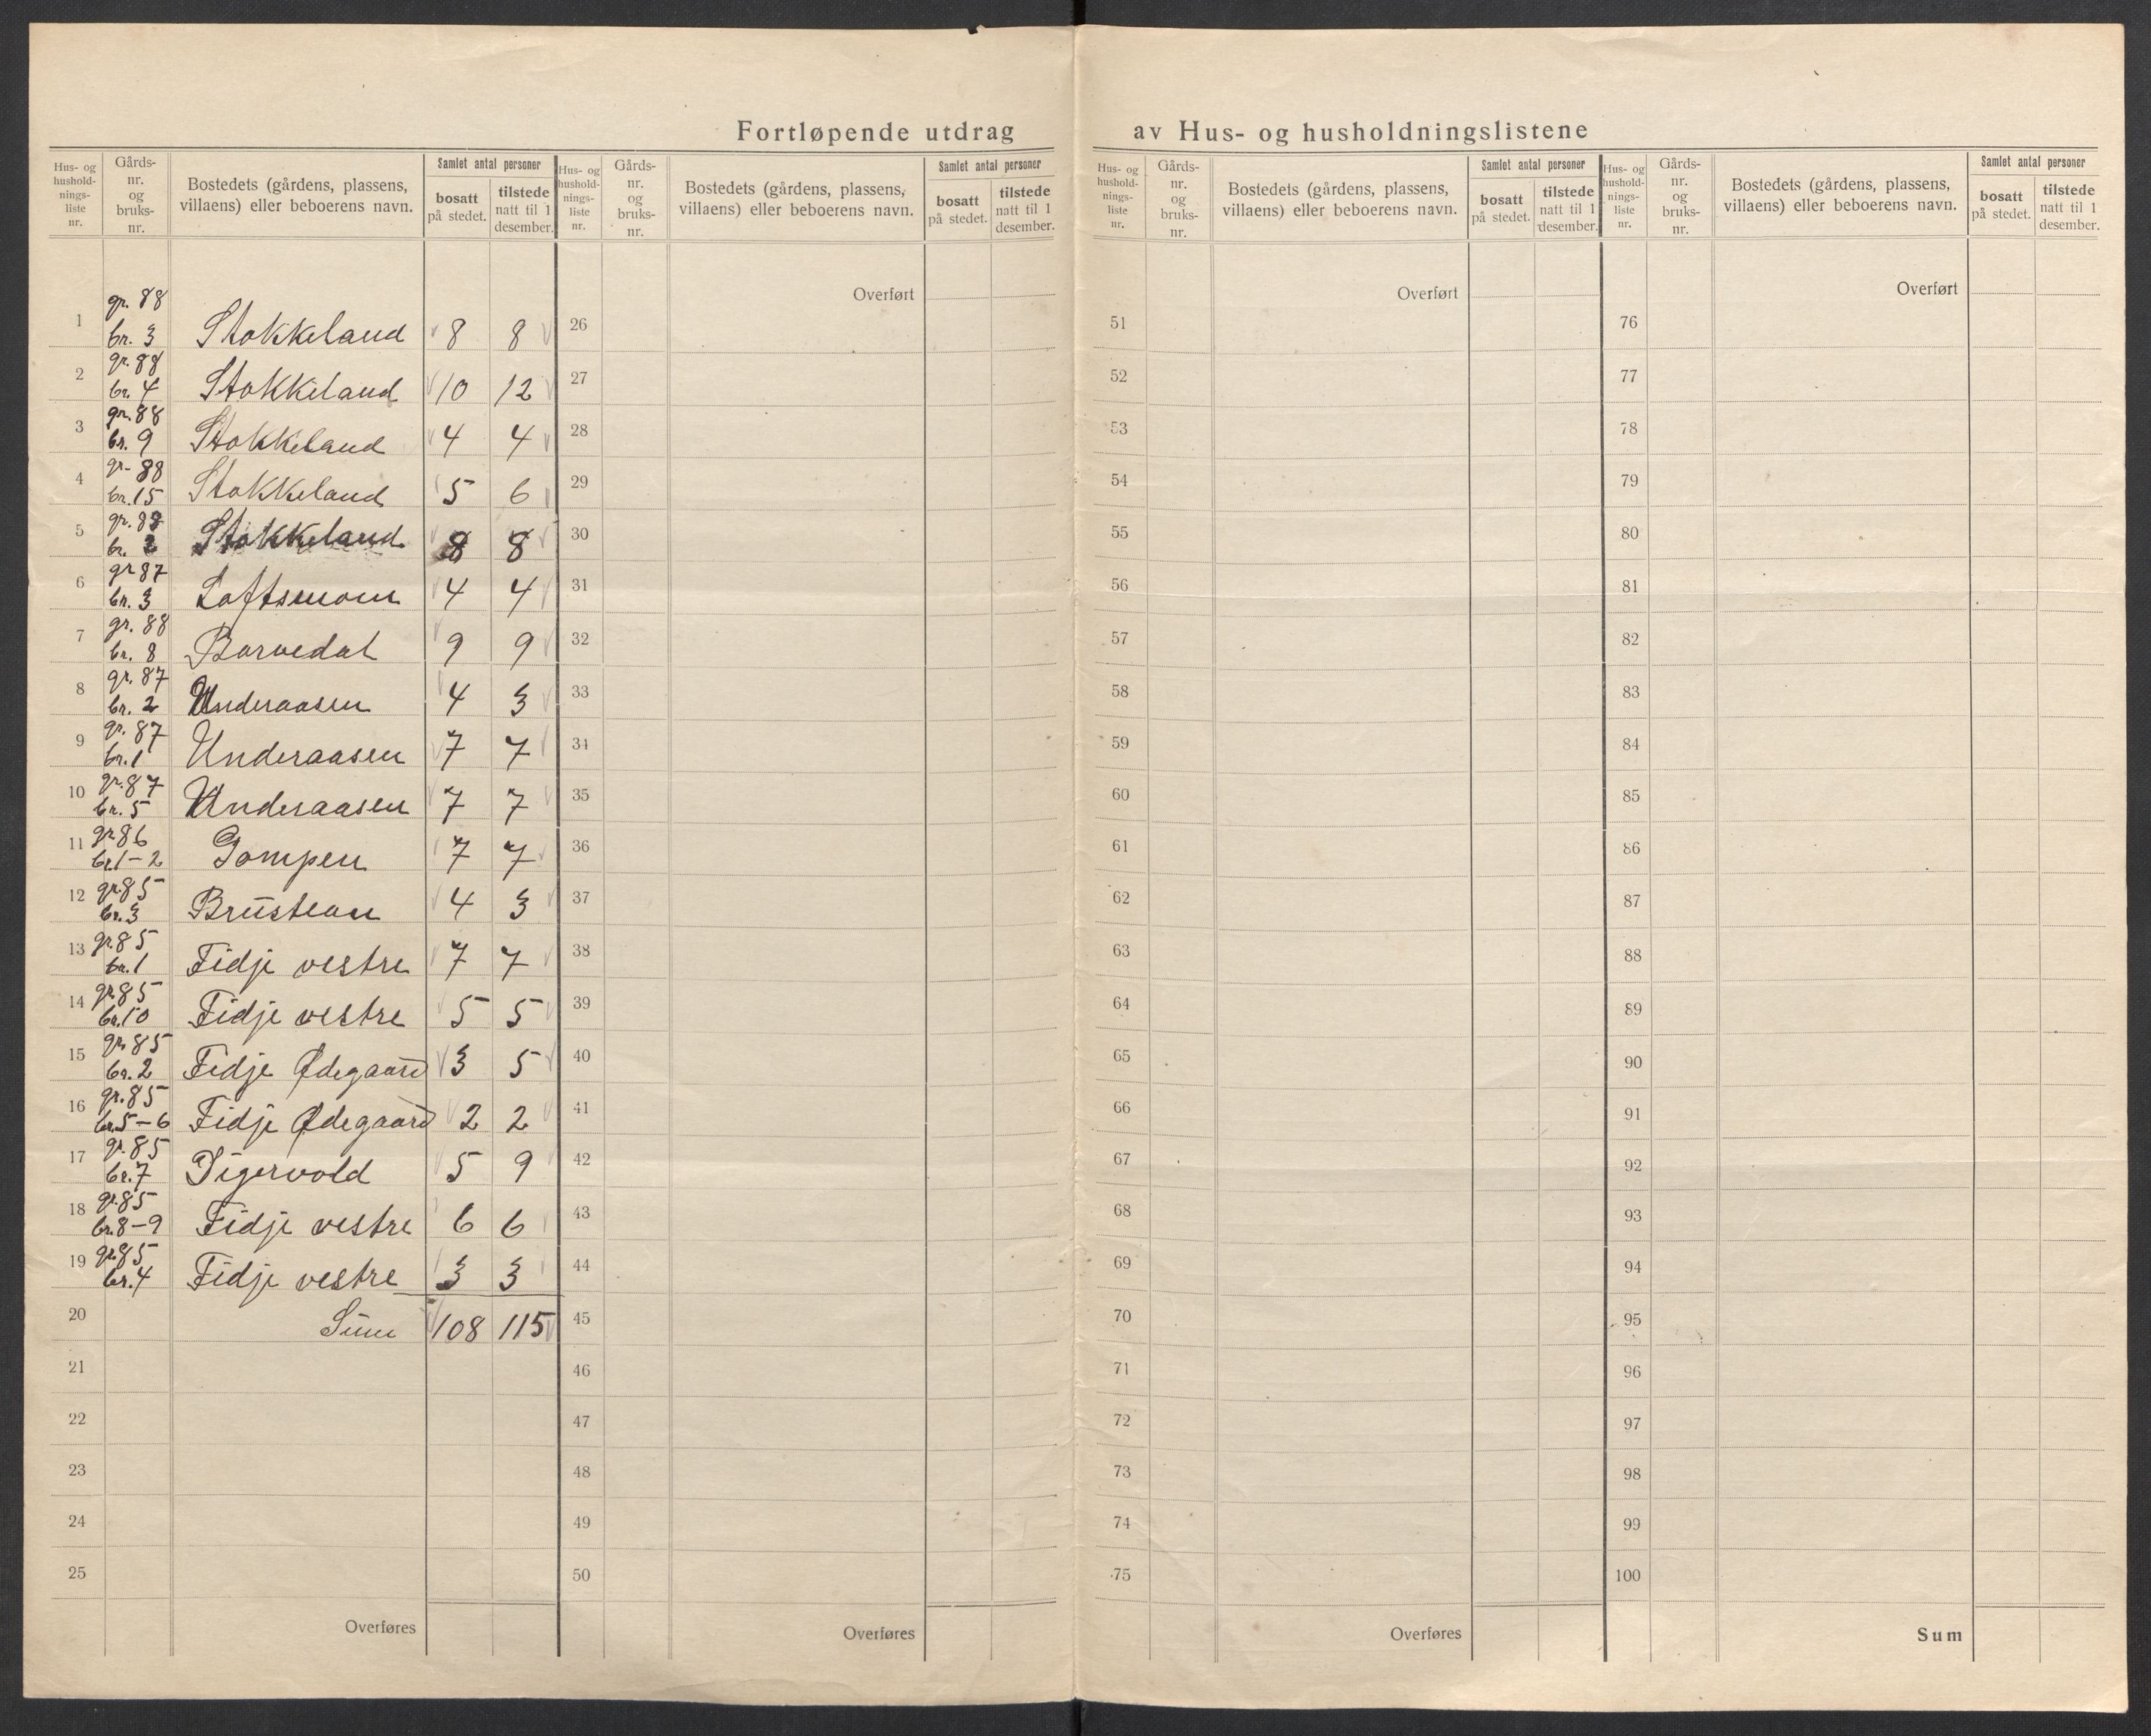 Fortløpende utdrag av Hus- og husholdningslistene
Hus- og hushold-nings-liste nr. Gårds-nr. og bruks-nr. Bostedets (gårdens, plassens, villaens) eller beboerens navn. Samlet antal personer bosatt på stedet. tilstede natt til 1 desember.
Hus- og hushold-nings-liste nr. Gårds-nr. og bruks-nr. Bostedets (gårdens, plassens, villaens) eller beboerens navn. Samlet antal personer bosatt på stedet. tilstede natt til 1 desember.
Hus- og hushold-nings-liste nr. Gårds-nr. og bruks-nr. Bostedets (gårdens, plassens, villaens) eller beboerens navn. Samlet antal personer bosatt på stedet. tilstede natt til 1 desember.
Hus- og hushold-nings-liste nr. Gårds-nr. og bruks-nr. Bostedets (gårdens, plassens, villaens) eller beboerens navn. Samlet antal personer bosatt på stedet. tilstede natt til 1 desember.
Overført Overført Overført
1 gr. 88 br. 3 Stokkeland 8 8 26 51 76
2 gr. 88 br. 4 Stokkeland 10 12 27 52 77
3 gr. 88 br. 9 Stokkeland 4 4 28 53 78
4 gr. 88 br. 15 Stokkeland 5 6 29 54 79
5 gr. 88 br. 2 Stokkeland 8 8 30 55 80
6 gr 87 br. 3 Loftsmoen 4 4 31 56 81
7 gr. 88 br. 8 Barvedal 9 9 32 57 82
8 gr. 87 br. 2 Underaasen 4 3 33 58 83
9 gr. 87 br. 1 Underaasen 7 7 34 59 84
10 gr. 87 br. 5 Underaasen 7 7 35 60 85
11 gr. 86 br. 1-2 Gompen 7 7 36 61 86
12 gr. 85 br. 3 Brustean 4 3 37 62 87
13 gr. 85 br. 1 Fidje vestre 7 7 38 63 88
14 gr. 85 br. 10 Fidje vestre 5 5 39 64 89
15 gr. 85 br. 2 Fidje Ødegaard 3 5 40 65 90
16 gr. 85 br. 5-6 Fidje Ødegaard 2 2 41 66 91
17 gr. 85 br. 7 5 9 42 67 92
18 gr. 85 br. 8-9 Fidje vestre 6 6 43 68 93
19 gr. 85 br. 4 Fidje vestre 3 3 44 69 94
20 Sum 108 115 45 70 95
21 46 71 96
22 47 72 97
23 48 73 98
24 49 74 99
25 50 75 100
Overføres Overføres Overføres Sum